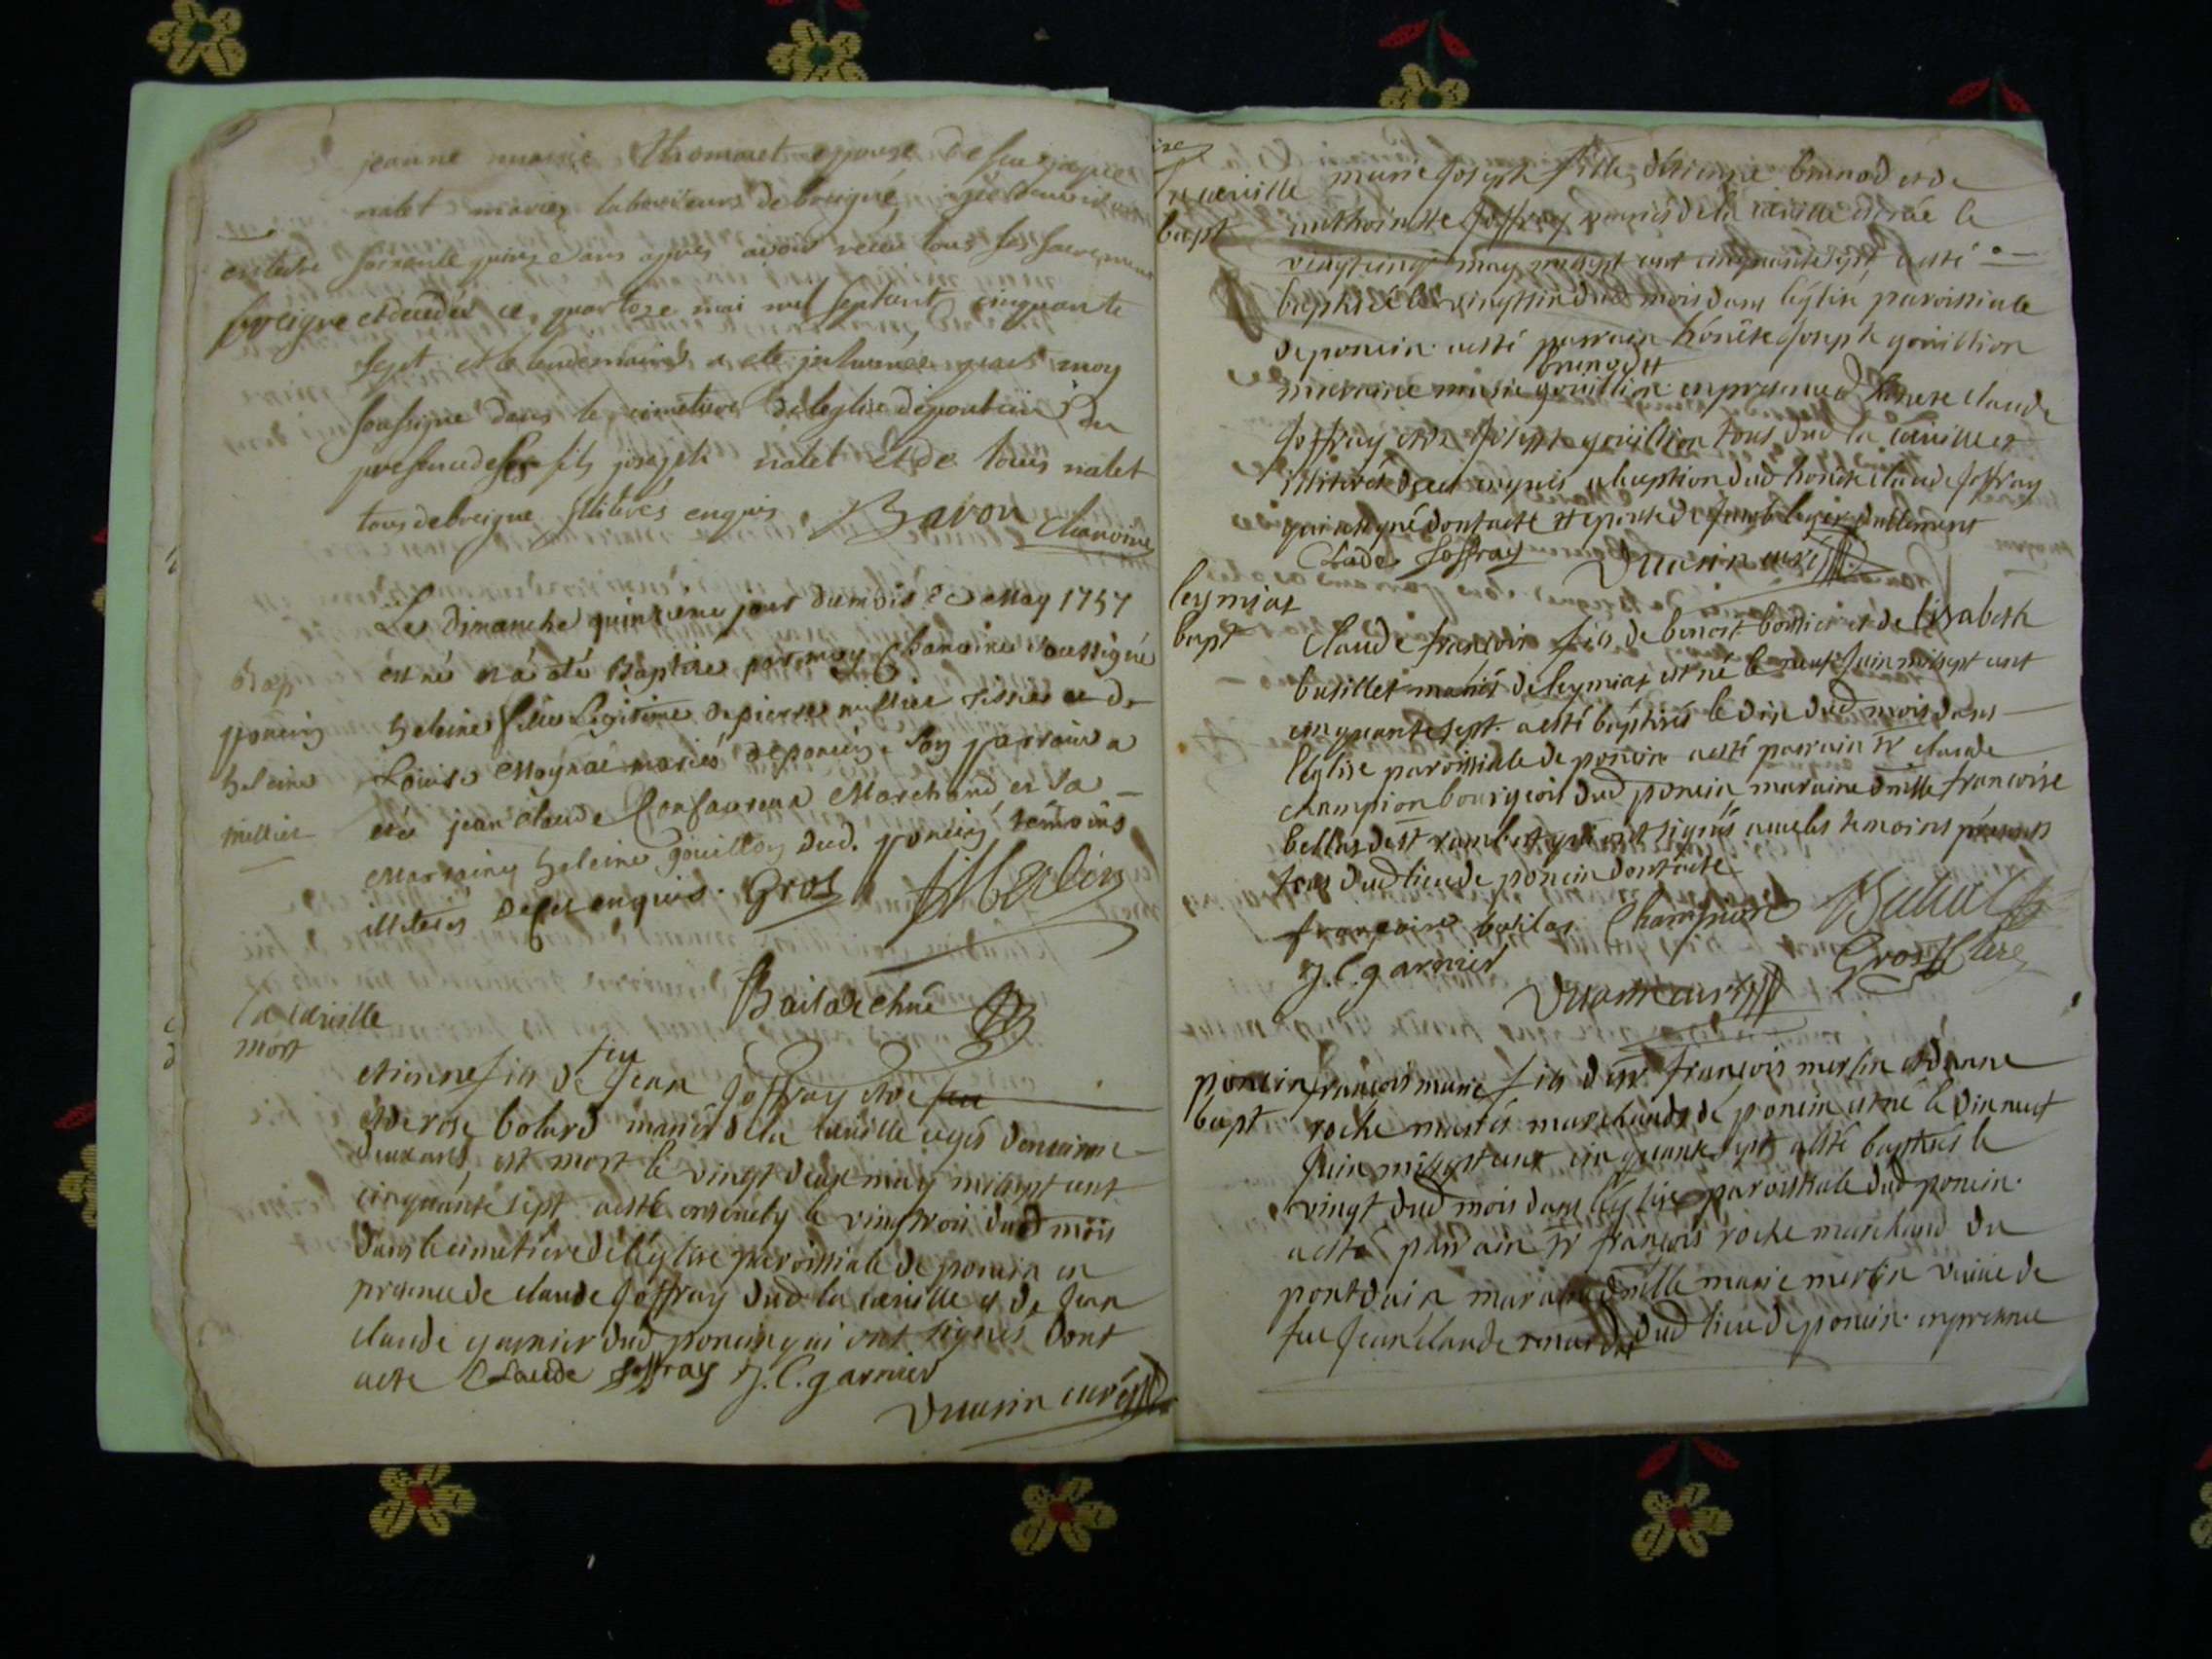 jeanne marie Thomaret epouse de feu
nalet mariez laboureurs de breigne
soixante quinze ans apres avoir receu tous ses sacrements
breigne et decedée ce quatorze mai mil sept cent cinquante
sept et le lendemain a eté inhumée par moy
soussigné dans le cimetiere de leglise de
presence de ses fils joseph nalet et de louis nalet
tous de breigne illiterés enquis Bavou chanoine
Le Dimanche quinzieme jour du mois de May 1757
Bap
poncin
heleine
millier
est né et a été Baptisée par moy Chanoine soussigné
heleine fille Legitime de pierre millier tissier et de
Louise mariés de poncin. Son parrain a
eté jean claude Marchand et sa
Marraine heleine goüillon dud. poncin témoins
illiterés de ce enquis. Gros Merlin
la cueille
mort
etienne fils de feu jean joffray et de feu
et de rose bolard mariés de la cueille agés denviron
deux ans, est mort le vingt deux may mil sept cent
cinquante sept a esté enseuely le vingt trois dud mois
dans le cimetiere de léglise paroissiale de poncin en
presence de claude joffray dud la cueille et de jean
claude garnier dud poncin qui ont signés dont
acte Claude Joffray J. C. garnier
curé
la cueille
bapt
marie joseph fille détienne brunod et de
anthoinette joffray mariés de la cueille est née le
vingt cinq may mil sept cent cinquante sept a esté
baptisée le vingt six dud mois dans léglise paroissiale
de poncin a esté parrain honéte joseph goüillion
brunod et
maraine marie goüillion en presence d honete claude
joffray et de joseph goüillion tous dud la cueille et
illiterés de ce enquis a leception dud honéte claude joffray
qui a signé dont acte
Claude Joffray curé
leymiat
bapt
claude francois fils de benoit bossier et de lisabeth
busillet mariés de leymiat est né le neuf juin mil sept cent
cinquante sept a esté baptisés le dix dud mois dans
léglise paroissiale de poncin a esté parrain sr claude
champion bourgeois dud poncin, maraine dmlle francoise
de st rambert qui ont signés avec les temoins présents
tous dud lieu de poncin dont acte
francoise Champion
J. C. garnier Gros Clere
curé
poncin
bapt
francois marie fils de sr francois merlin et danne
roche mariés marchands de poncin est né le dix neuf
juin mil sept cent cinquante sept a esté baptisés le
vingt dud mois dans léglise paroissiale dud poncin.
a esté parrain sr francois roche marchand du
pont dain maraine dmlle marie merlin veuve de
feu jean claude renard dud lieu de poncin en presence